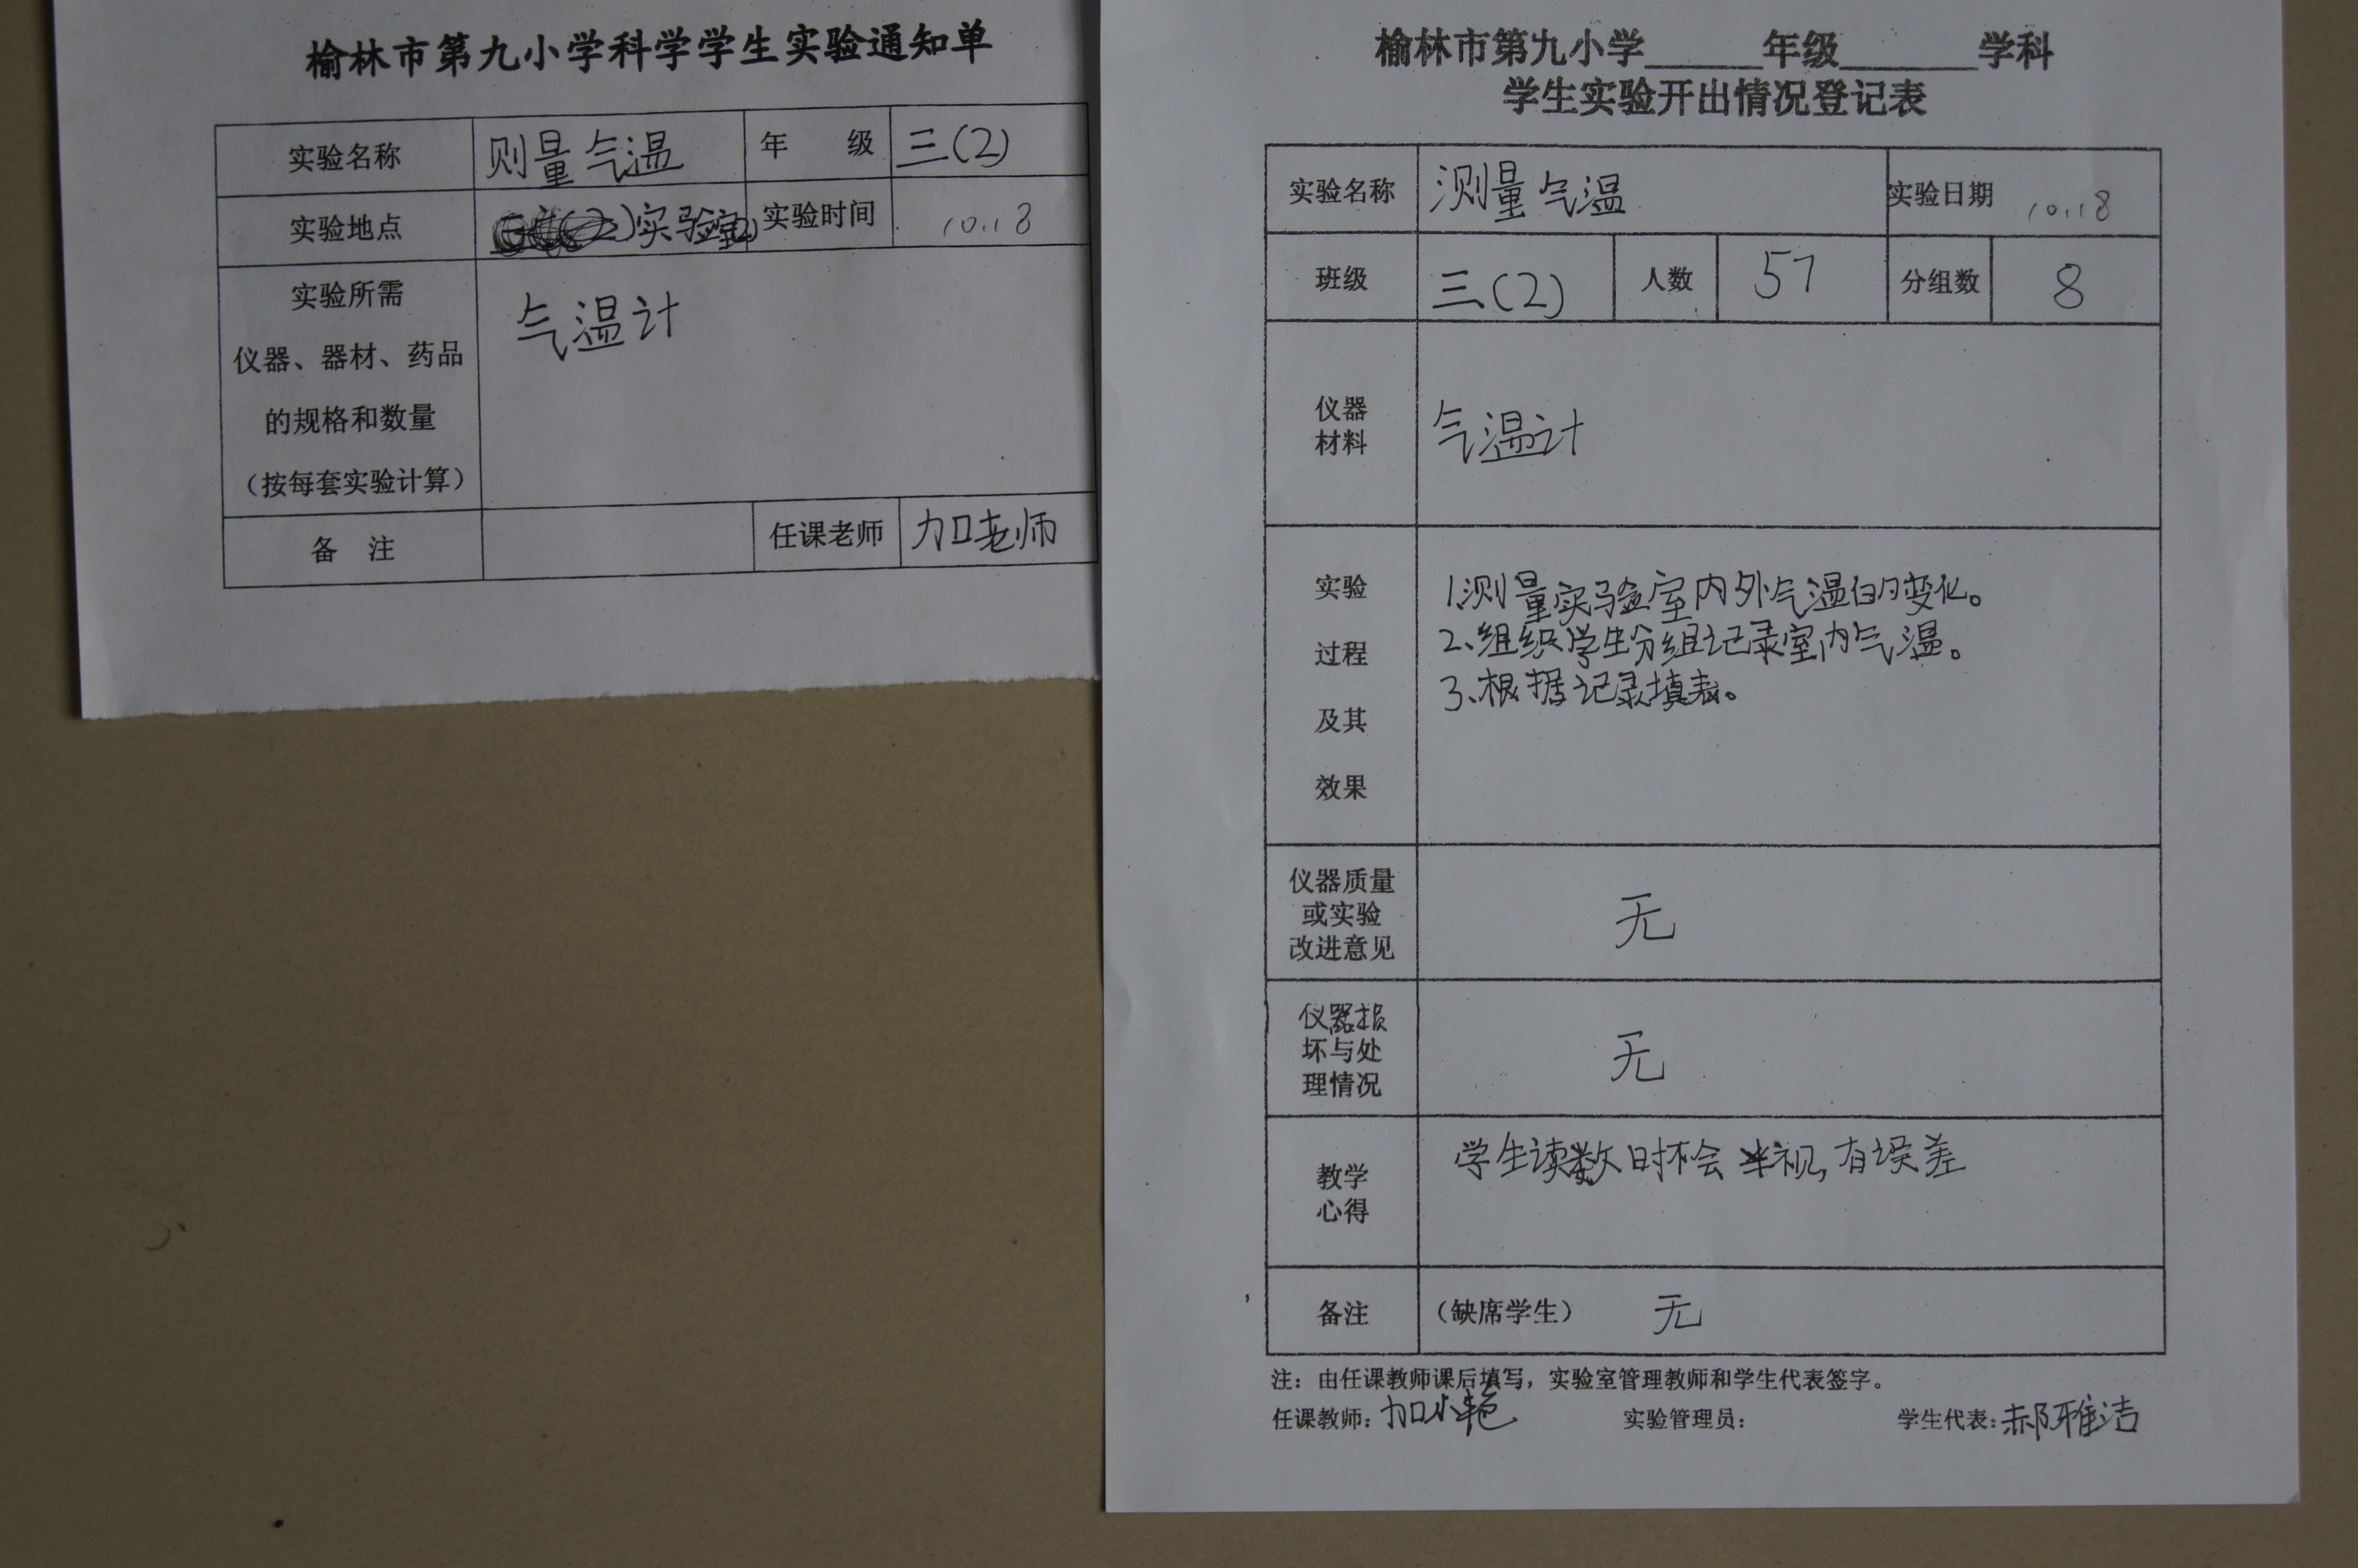 榆林市第九小学科学学生实验通知单
实验名称 则量气温 年 级 三(2)
实验地点 实验室(2) 实验时间 10.18
实验所需
仪器、器材、药品
的规格和数量
（按每套实验计算）
气温计
备 注 任课老师 加老师
榆林市第九小学______年级_______学科
学生实验开出情况登记表
实验名称 测量气温 实验日期 10.18
班级 三(2) 人数 57 分组数 8
仪器
材料
气温计
实验
过程
及其
效果
1.测量实验室内外气温的变化。
2、组织学生分组记录室内气温。
3、根据记录填表。
仪器质量
或实验
改进意见
无
仪器损
坏与处
理情况
无
教学
心得
学生读数时不会平视,有误差
备注 （缺席学生） 无
注：由任课教师课后填写，实验室管理教师和学生代表签字。
任课教师：加小艳 实验管理员： 学生代表：郝雅洁